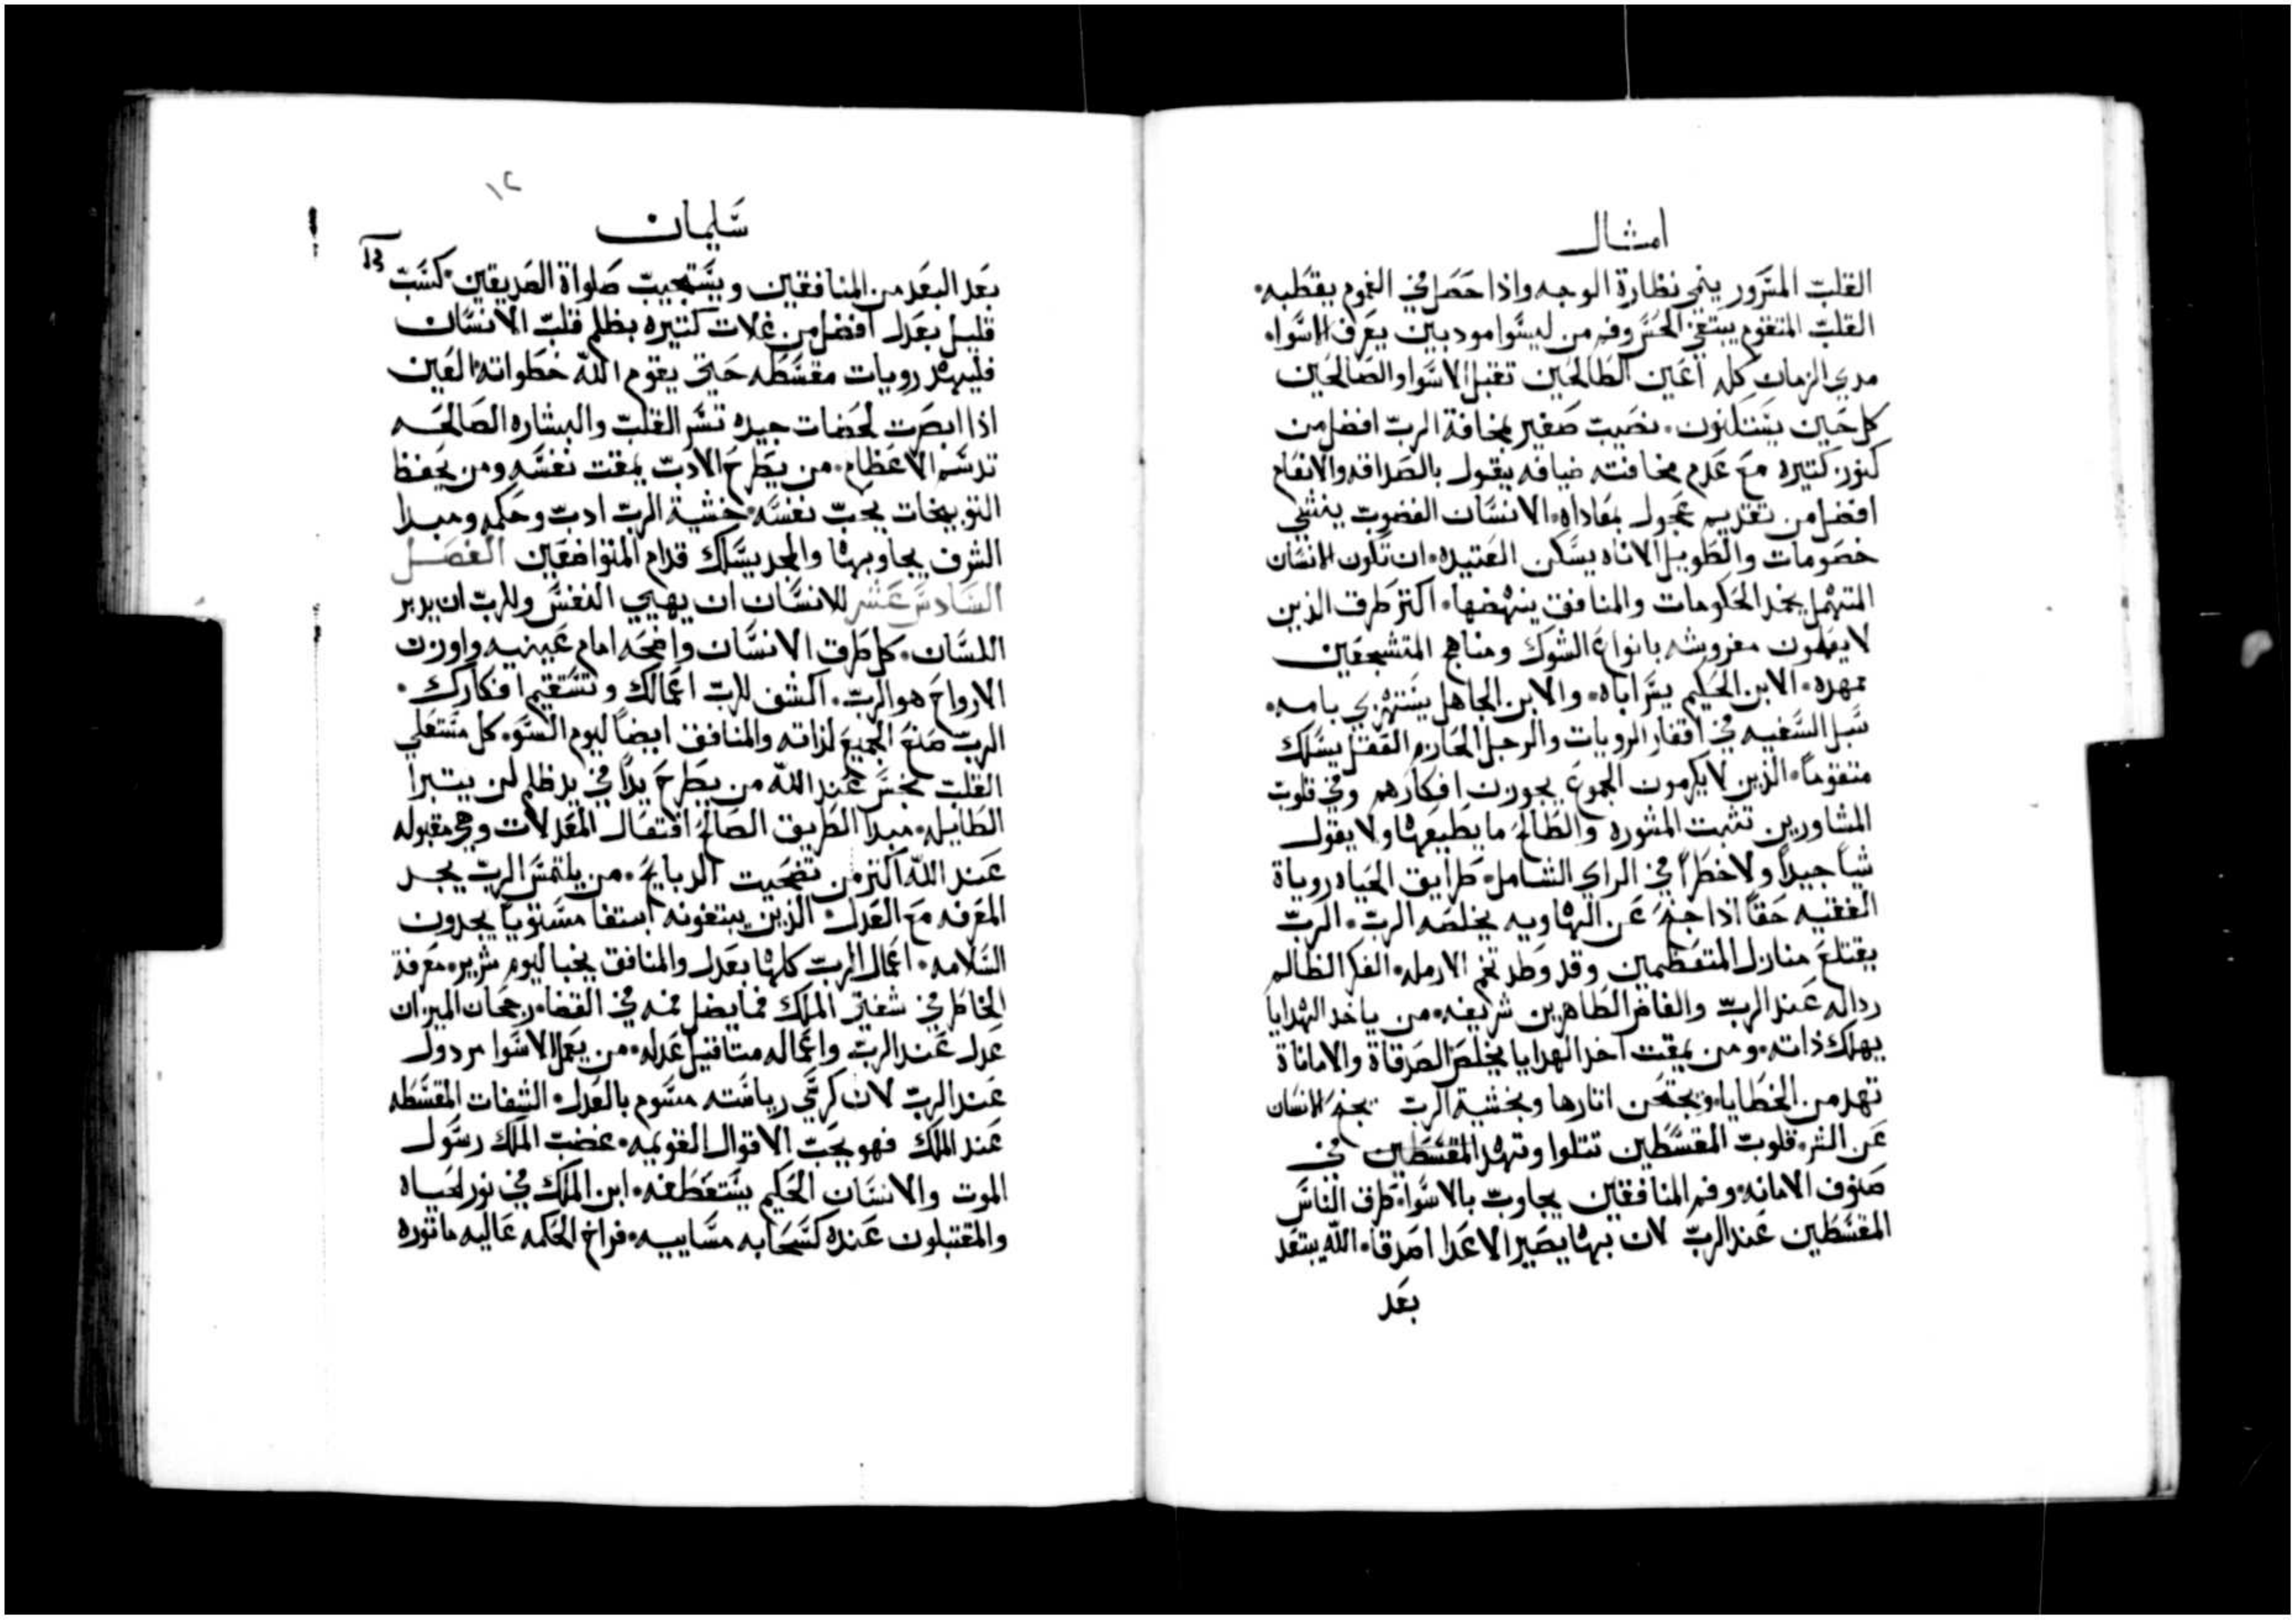 امثال
القلب المسرور ينمي نظارة الوجه واذا حصل في الغموم يقطبه.
القلب المتقوم يبتغي الحس وفم من ليسوا مودبين يعرف الاسواء
مدي الزمان كله اعين الطالحين تقبل الاسوا والصالحين
كل حين يستلنون. نصيب صغير بمخافة الرب افضل من
كنوز كتيره مع عدم مخافته ضيافه ببقول بالصداقه والانعام
افضل من تقديم عجول بمعاداه. الانسان الغضوب ينشي
خصومات والطويل الاناه يسكن العتيده. ان تكون الانسان
المتمهل يخمد الحكومات والمنافق ينهضها. اكتر طرق الذين
لا يعملون مفروشه بانواع الشوك ومناهج المتشجعين
ممهده. الابن الحكيم يسر اباه. والابن الجاهل يستهزي بامه.
سبل السفيه في افقار الرويات والرجل الحازم العقل يسلك
متقوماً. الذين لا يكرمون الجموع يجوزن افكارهم وفي قلوب
المشاورين تثبت المشوره والطالح ما يطيعها ولا يقول
شياً جيداً ولا خطراً في الراي الشامل. طرايق الحياه روياة
الفقيه حقاً اذا جنح عن الهاويه يخلصه الرب. الرب
يقتلع منازل المتعظمين وقد وطد تخم الارمله. الفكر الظالم
رداله عند الرب والفاض الطاهرين شريفه. من ياخد الهدايا
يهلك ذاته. ومن يمقت اخد الهدايا يخلص الصدقاة والاماناة
تهد من الخطايا ويجتحن اتارها وبخشية الرب يجنح الانسان
عن الشر. قلوب المقسطين تتلوا وتهد المقسطين في
صنوف الامانه. وفم المنافقين يجاوب بالاسوا. طرق الناس
المقسطين عند الرب لان بها يصير الاعدا اصدقا. الله يبتعد
بعد
١٢
سليمان
بعد البعد من المنافقين ويستجيب صلواة الصديقين. كسب
قليل بعدل افضل من غلات كتيره بظلم قلب الانسان
فليهد رويات مقسطه حتي يقوم الله خطواته. العين
اذا ابصرت لحضات جيده تسر القلب والبشاره الصالحه
تدسم الاعظام. من يطرح الادب يمقت نفسه ومن يحفظ
التوبيخات يحب نفسه. خشية الرب ادب وحكمه ومبدا
الشرف يجاوبها والمجد يسلك قدام المتواضعين الفصل
السادس عشر للانسان ان يهيي النفس وللرب ان يدبر
اللسان. كل طرق الانسان واضحه امام عينيه واوزن
الارواح هو الرب. اكشف للرب اعمالك وتستقيم افكارك.
الرب صنع الجميع لذاته والمنافق ايضاً ليوم السو. كل مستعلي
القلب نجس عند الله من يطرح يداً في يد ظلم لن يتبرا
الطايله. مبدا الطريق الصالح افتعال المعدلات وهي مقبوله
عند الله اكتر من تضحيت الدبايح. من يلتمس الرب يجد
المعرفه مع العدل. الذين يبتغونه ابتغا مستوياً يجدون
السلامه. اعمال الرب كلها بعدل والمنافق يخبا ليوم شرير. معرفة
الخاطر في شفتي الملك فما يضل فمه في القضا. رجحان الميزان
عدل عند الرب واعماله متاقيل عدله. من يعمل الاسوا مردول
عند الرب لان كرسي رياسته مسوم بالعدل. الشفات المقسطه
عند الملك فهو يحب الاقوال القويمه. غضب الملك رسول
الموت والانسان الحكيم يستعطفه. ابن الملك في نور لحياه
والمقتبلون عنده كسحابه مسايبيه. فراخ الحكمه عاليه ماتوره